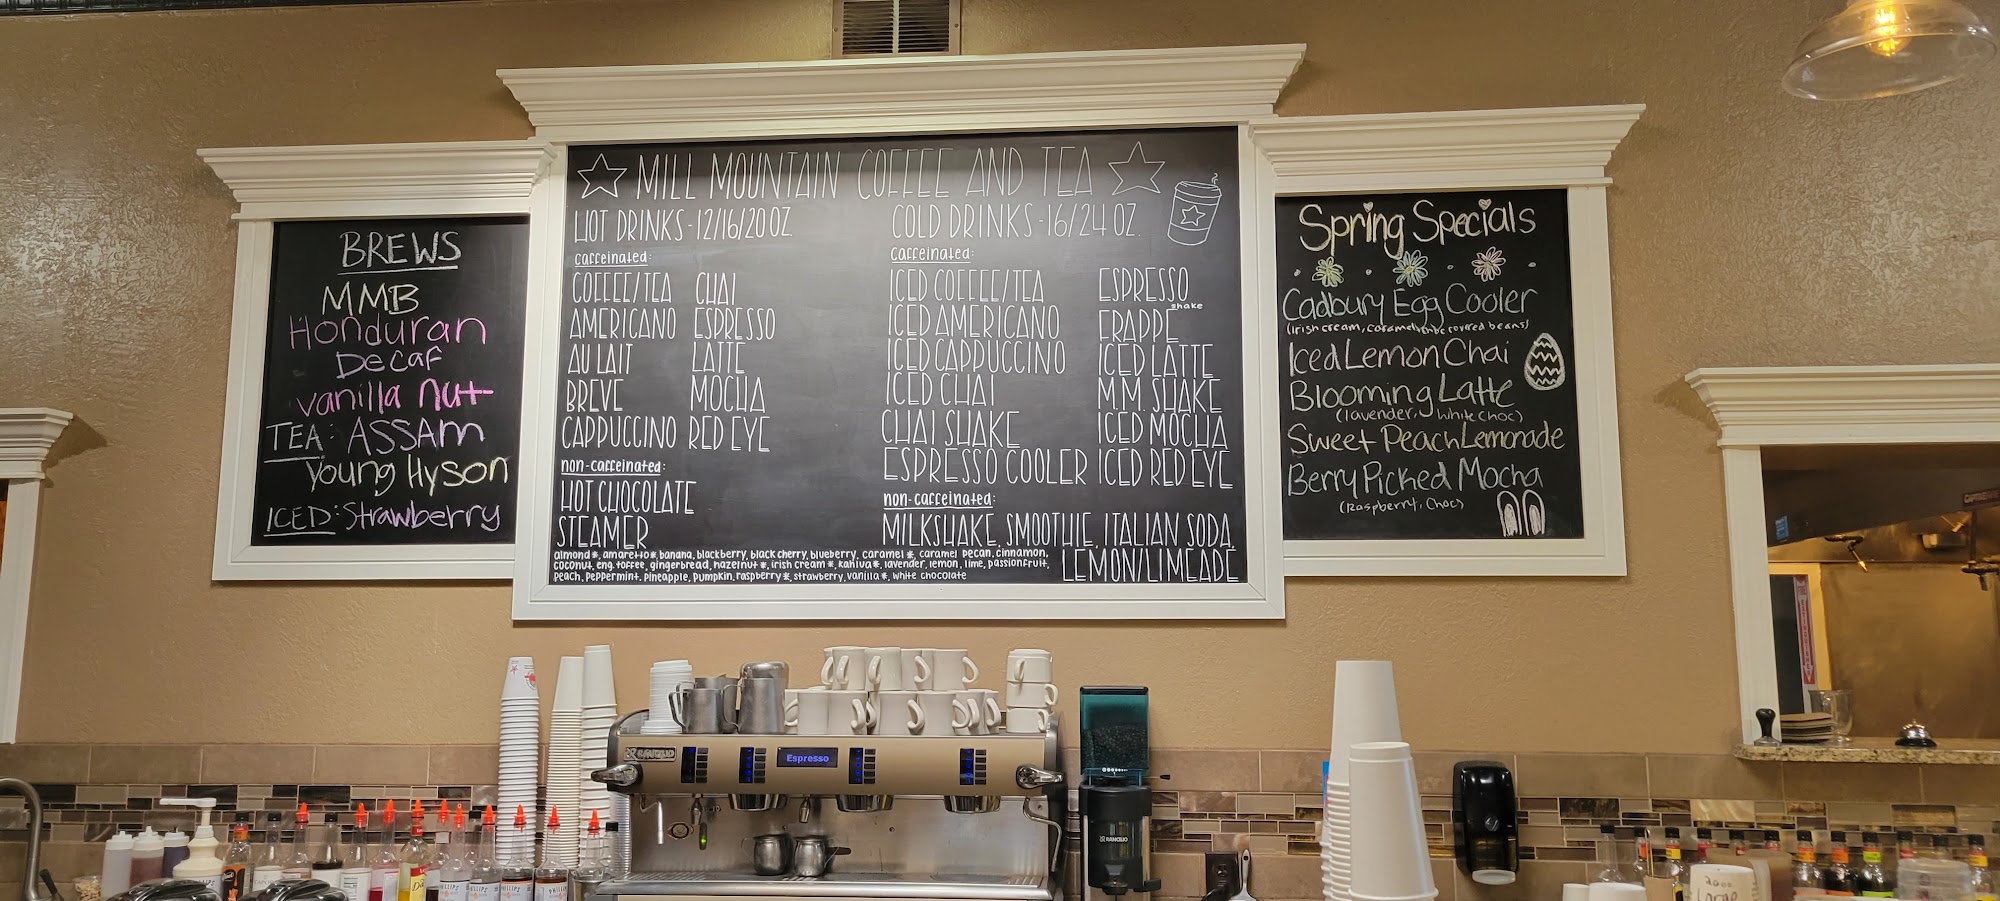 BREWS
MMB
Honduran
Decaf
vanilla nut
TEA: ASSAM
Young Hyson
ICED: Strawberry
MILL MOUNTAIN COFFEE AND TEA
HOT DRINKS - 12/16/20 OZ.
caffeinated:
COFFEE/TEA CHAI
AMERICANO ESPRESSO
AU LAIT LATTE
BREVE MOCHA
CAPPUCCINO RED EYE
non-caffeinated:
HOT CHOCOLATE
STEAMER
almond*, amaretto*, banana, blackberry, black cherry, blueberry, caramel*, caramel pecan, cinnamon,
coconut, eng. toffee, gingerbread, hazelnut*, irish cream*, kahlua*, lavender, lemon, lime, passionfruit,
peach, peppermint, pineapple, pumpkin, raspberry*, strawberry, vanilla*, white chocolate
COLD DRINKS - 16/24 OZ.
caffeinated:
ICED COFFEE/TEA ESPRESSO shake
ICED AMERICANO FRAPPE
ICED CAPPUCCINO ICED LATTE
ICED CHAI M.M. SHAKE
CHAI SHAKE ICED MOCHA
ESPRESSO COOLER ICED RED EYE
non-caffeinated:
MILKSHAKE, SMOOTHIE, ITALIAN SODA,
LEMON/LIMEADE
Spring Specials
Cadbury Egg Cooler
(irish cream, caramel, covered beans)
Iced Lemon Chai
Blooming Latte
(lavender, white choc)
Sweet Peach Lemonade
Berry Picked Mocha
(Raspberry, Choc)
RANCILIO
Espresso
RANCILIO